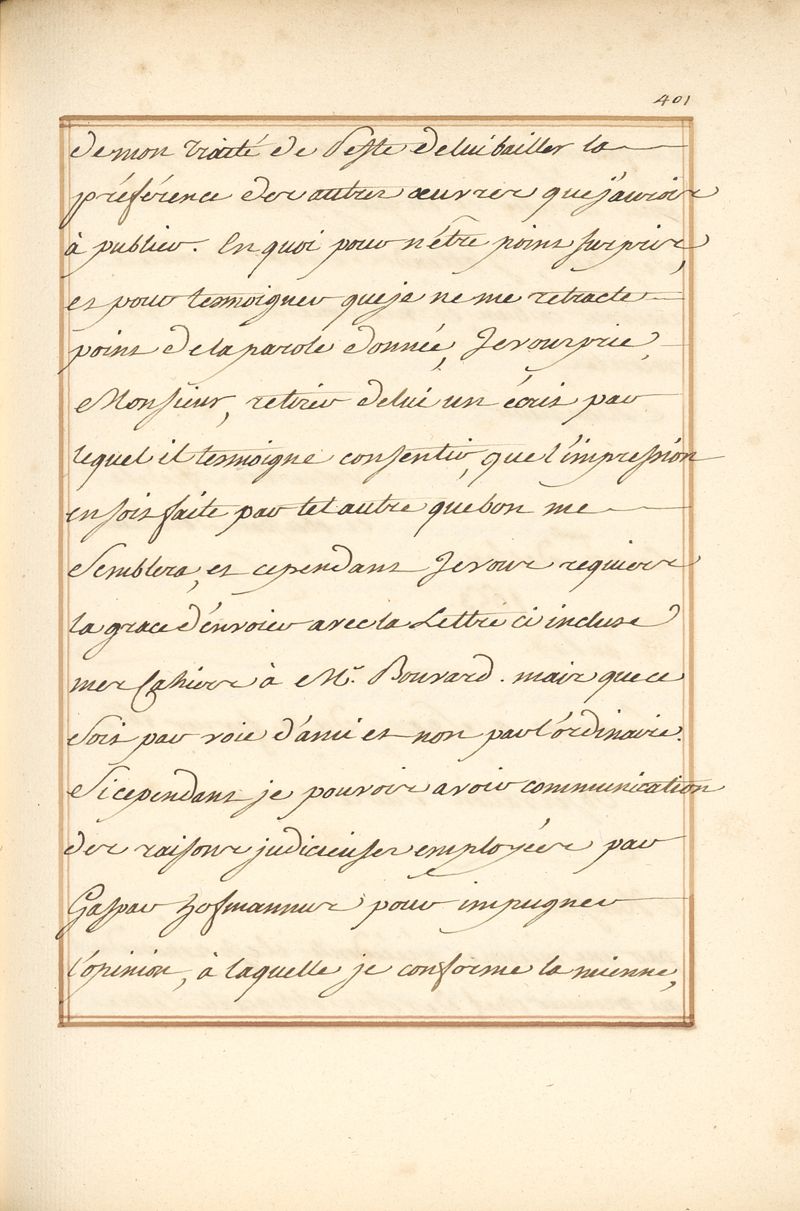 401
de mon traité de Peste de lui bailler la
préférence des autres œuvres que j'aurois
à publier. En quoi pour n'être point surpris,
et pour temoigner que je ne me retracte
point de la parole donnée, Je vous prie,
Monsieur, retirer de lui un écrit par
lequel il temoigne consentir, que l'impression
en soit faite par tel autre que bon me
Semblera, et cependant Je vous requiers
la grace d'énvoier avec la Lettre ci incluse
mes Cahiers à Mr. Bouvard. mais que ce
Soit par voie d'ami et non par l'ordinaire.
Si cependant je pouvois avoir communication
des raisons judicieuses employées par
Gaspar Hofmannus pour impugner
l'opinion, à laquelle je conforme la mienne,